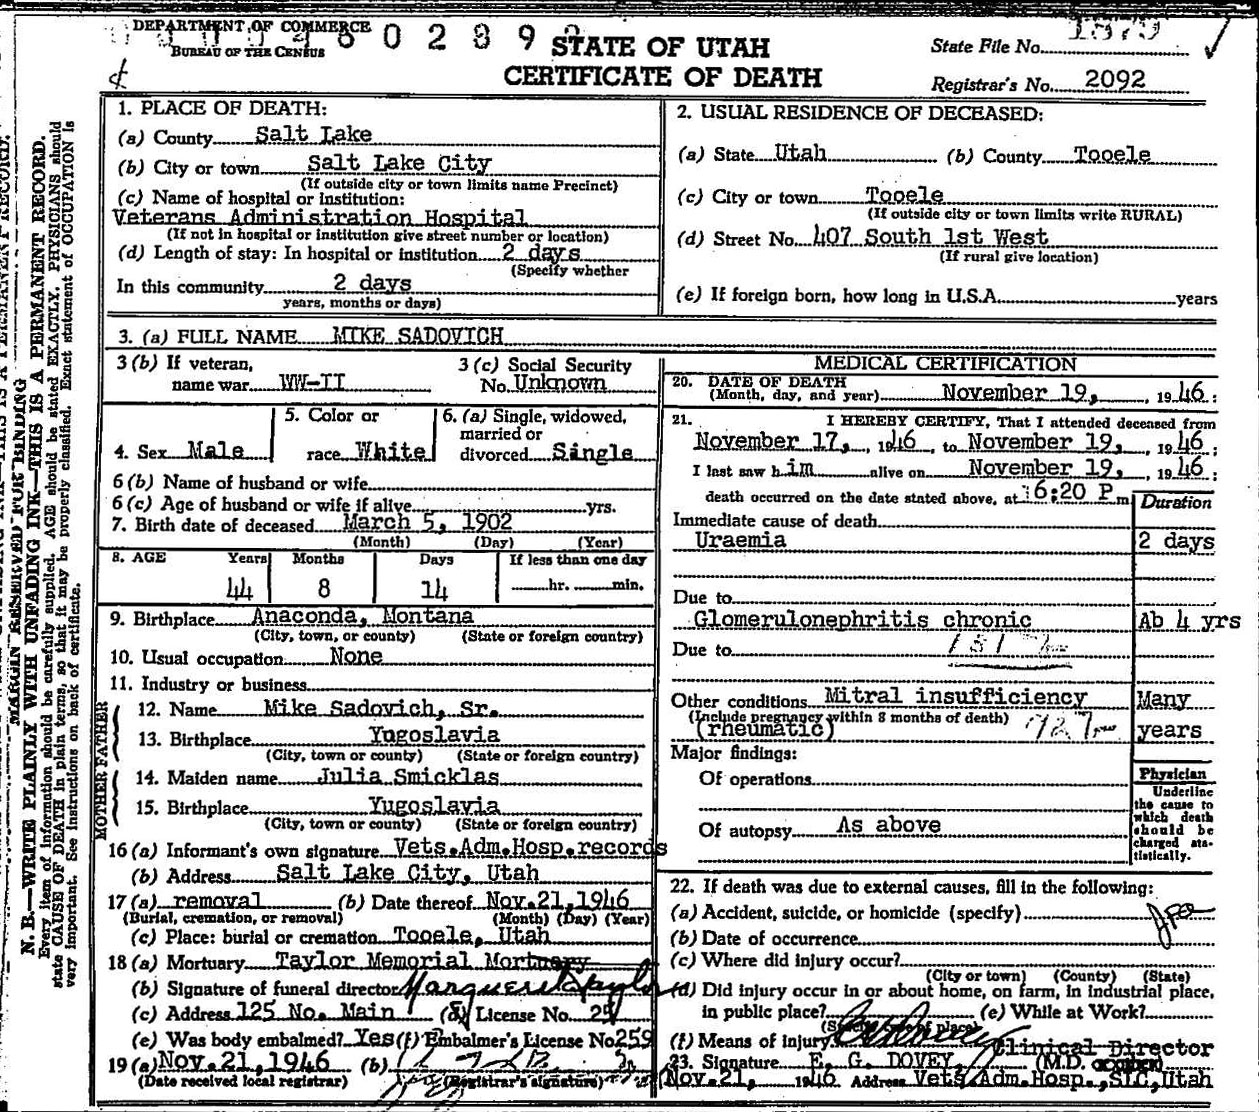 DEPARTMENT OF COMMERCE
BUREAU OF THE CENSUS
STATE OF UTAH
CERTIFICATE OF DEATH
State File No.
Registrar's No. 2092
1. PLACE OF DEATH:
(a) County Salt Lake
(b) City or town Salt Lake City
(If outside city or town limits name Precinct)
(c) Name of hospital or institution:
Veterans Administration Hospital
(If not in hospital or institution give street number or location)
(d) Length of stay: In hospital or institution 2 days
(Specify whether
In this community 2 days
years, months or days)
2. USUAL RESIDENCE OF DECEASED:
(a) State Utah (b) County Tooele
(c) City or town Tooele
(If outside city or town limits write RURAL)
(d) Street No. 407 South 1st West
(If rural give location)
(e) If foreign born, how long in U.S.A. years
3. (a) FULL NAME MIKE SADOVICH
3 (b) If veteran,
name war WW-II
3 (c) Social Security
No. Unknown
4. Sex Male
5. Color or
race White
6. (a) Single, widowed,
married or
divorced Single
6 (b) Name of husband or wife
6 (c) Age of husband or wife if alive yrs.
7. Birth date of deceased March 5, 1902
(Month) (Day) (Year)
8. AGE Years Months Days If less than one day
44 8 14 hr. min.
9. Birthplace Anaconda, Montana
(City, town, or county) (State or foreign country)
10. Usual occupation None
11. Industry or business
FATHER
12. Name Mike Sadovich, Sr.
13. Birthplace Yugoslavia
(City, town or county) (State or foreign country)
MOTHER
14. Maiden name Julia Smicklas
15. Birthplace Yugoslavia
(City, town or county) (State or foreign country)
16 (a) Informant's own signature Vets.Adm.Hosp.records
(b) Address Salt Lake City, Utah
17 (a) removal (b) Date thereof Nov.21,1946
(Burial, cremation, or removal) (Month) (Day) (Year)
(c) Place: burial or cremation Tooele, Utah
18 (a) Mortuary Taylor Memorial Mortuary
(b) Signature of funeral director Marguerite Taylor
(c) Address 125 No. Main (d) License No. 25
(e) Was body embalmed? Yes (f) Embalmer's License No 259
19 (a) Nov.21,1946 (b)
(Date received local registrar) (Registrar's signature)
MEDICAL CERTIFICATION
20. DATE OF DEATH
(Month, day, and year) November 19, 1946:
21. I HEREBY CERTIFY, That I attended deceased from
November 17, 1946, to November 19, 1946:
I last saw him alive on November 19, 1946:
death occurred on the date stated above, at 6:20 P m
Duration
Immediate cause of death
Uraemia 2 days
Due to
Glomerulonephritis chronic Ab 4 yrs
Due to 131
Other conditions Mitral insufficiency Many
(Include pregnancy within 3 months of death)
(rheumatic) years
Major findings:
Of operations
Of autopsy As above
Physician
Underline
the cause to
which death
should be
charged sta-
tistically.
22. If death was due to external causes, fill in the following:
(a) Accident, suicide, or homicide (specify)
(b) Date of occurrence
(c) Where did injury occur?
(City or town) (County) (State)
(d) Did injury occur in or about home, on farm, in industrial place,
in public place? (e) While at Work?
(Specify type of place)
(f) Means of injury Clinical Director
23. Signature E. G. DOVEY, (M.D.
Nov.21, 1946 Address Vets.Adm.Hosp.,SLC,Utah
MARGIN RESERVED FOR BINDING
N. B.—WRITE PLAINLY WITH UNFADING INK—THIS IS A PERMANENT RECORD.
Every item of information should be carefully supplied. AGE should be stated EXACTLY. PHYSICIANS should
state CAUSE OF DEATH in plain terms, so that it may be properly classified. Exact statement of OCCUPATION is
very important. See instructions on back of certificate.